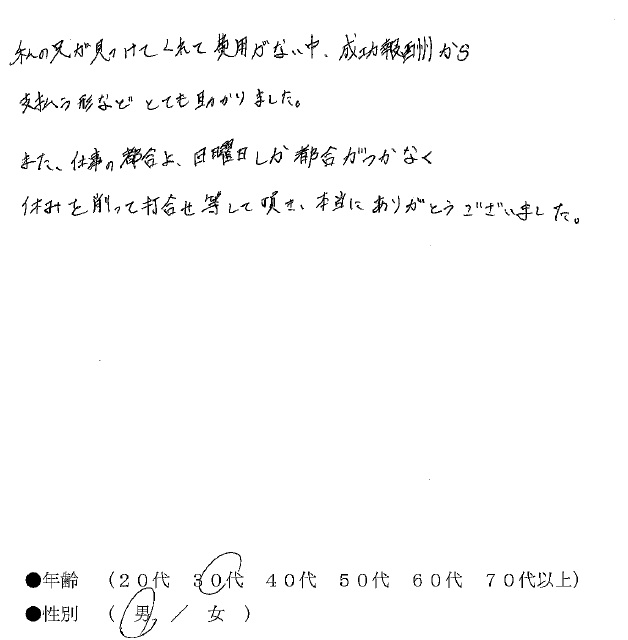 私の兄が見つけてくれて費用がない中、成功報酬から
支払う形などとても助かりました。
また、仕事の都合上、日曜日しか都合がつかなく
休みを削って打合せ等して頂き、本当にありがとうございました。
●年齢 （２０代 ３０代 ４０代 ５０代 ６０代 ７０代以上）
●性別 （ 男 ／ 女 ）